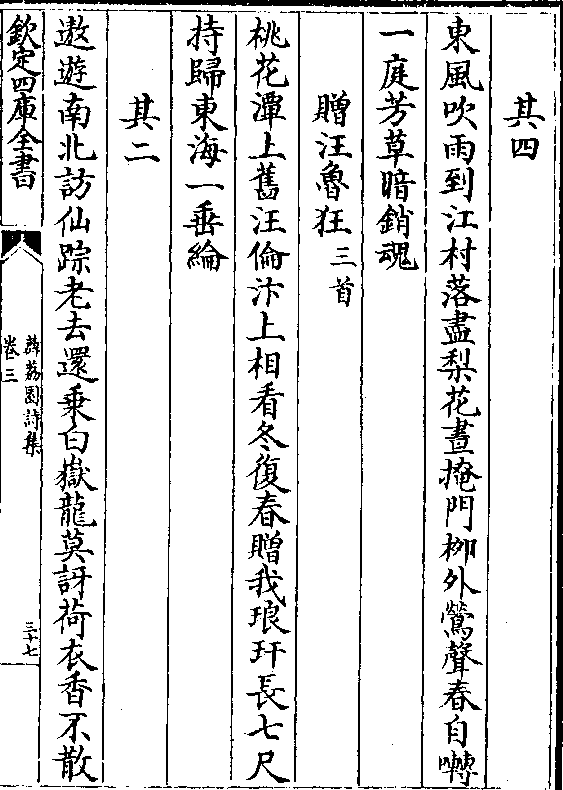 其四
東風吹雨到江村落盡梨花晝掩門柳外鶯聲春自囀
一庭芳草暗銷魂
贈汪魯狂三首
桃花潭上舊汪倫汴上相看冬復春贈我琅玕長七尺
持歸東海一垂綸
其二
遨遊南北訪仙踪老去還乗白嶽龍莫訝荷衣香不散
欽定四庫全書
薜荔園詩集
卷三
三十七